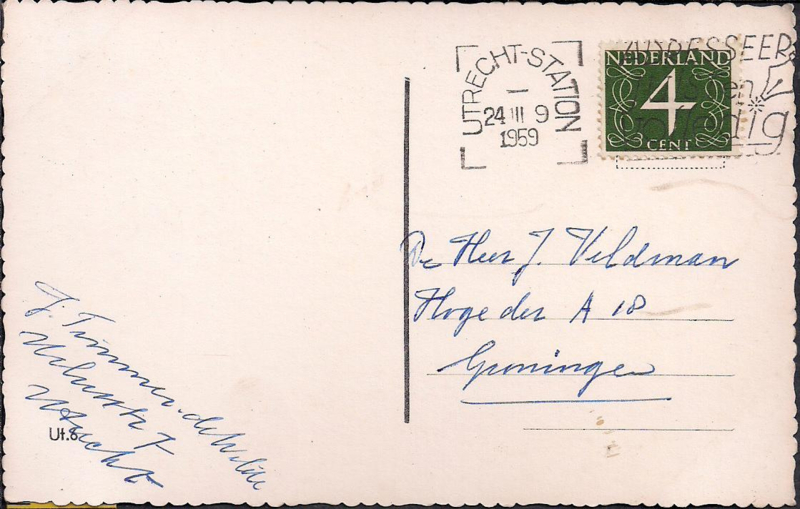 UTRECHT-STATION
24 III 9
1959
ADRESSEER
en
volledig
NEDERLAND
4
CENT
De Heer J. Veldman
Hoge der A 18
Groningen
J. Timmer-de Wilde
7
Utrecht
Ut.8